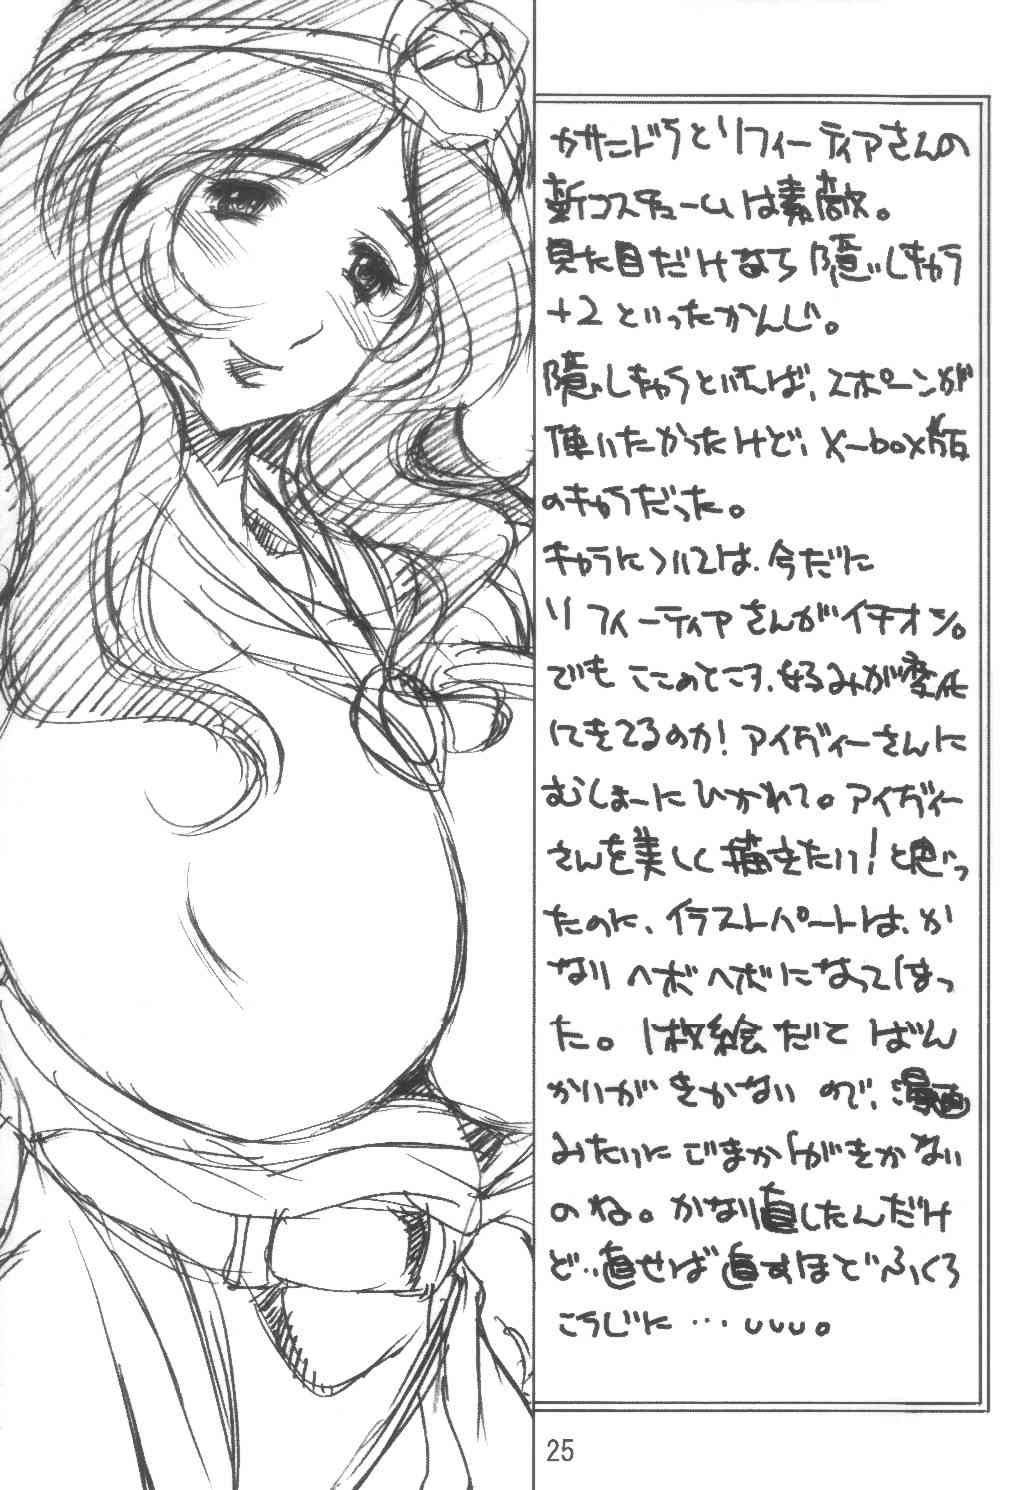 カサンドラとリフィーティアさんの
新コスチュームは素敵。
見た目だけなら隠しキャラ
+2といったかんじ。
隠しキャラといえば、スポーンが
使いたかったけど、X-box版
のキャラだった。
キャラについては、今だに
リフィーティアさんがイチオシ。
でもここのところ、好みが変化
にきてるのか!アイヴィーさんに
むしょーにひかれて。アイヴィー
さんを美しく描きたい!と思っ
たのに、イラストパートは、か
なりヘボヘボになってしまっ
た。1枚絵だてばん
かいがきかないので、漫画
みたいにごまかしがきかない
のね。かなり直したんだけ
ど‥直せば直すほどふくろ
こうじに…uuu。
25